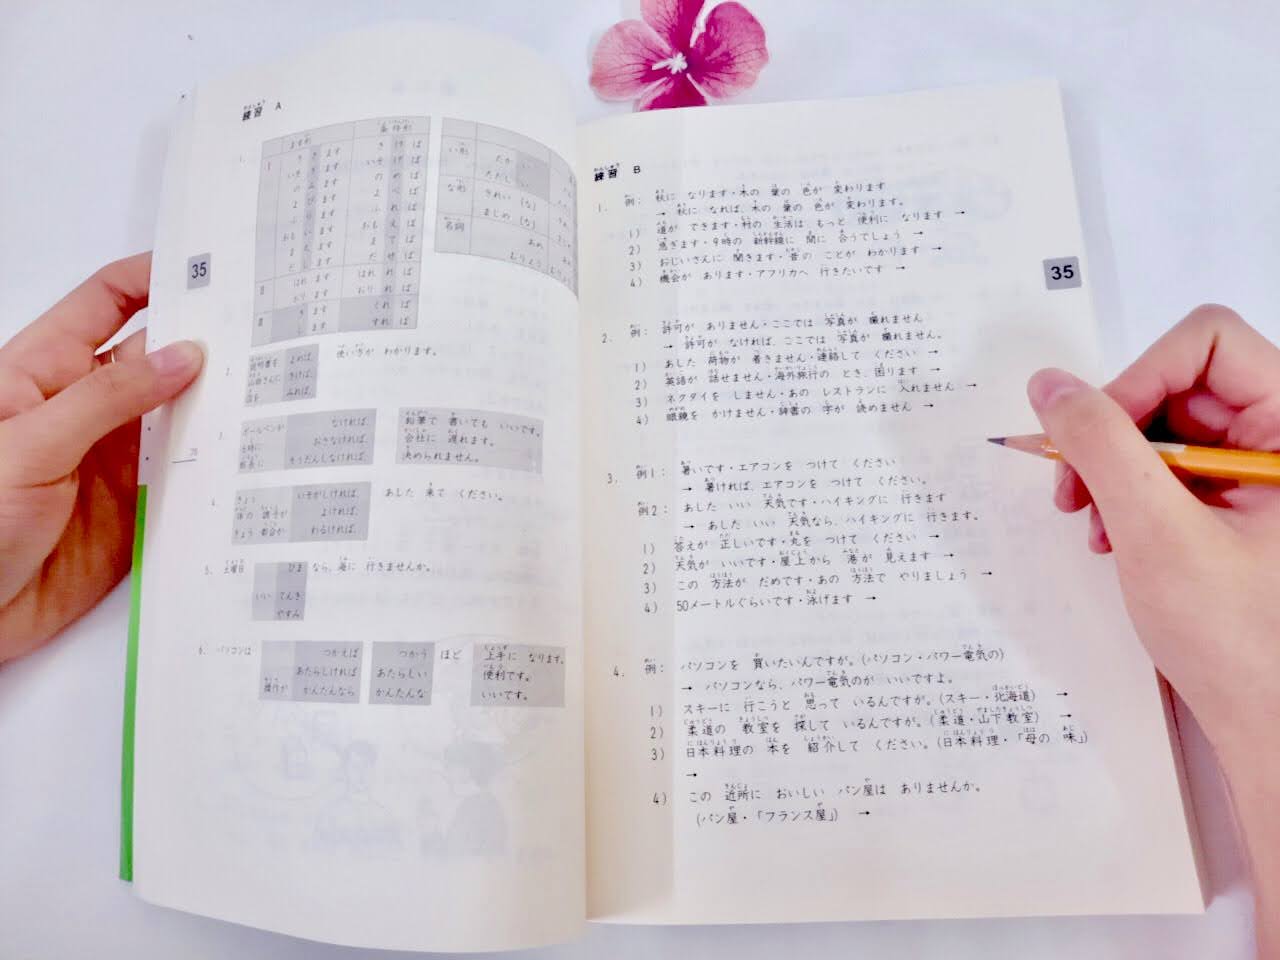 練習 A
1.
ます形 条件形
Ⅰ き き ます き け ば
いそ ぎ ます いそ げ ば
の み ます の め ば
よ び ます よ べ ば
ふ り ます ふ れ ば
おも い ます おも え ば
ま ち ます ま て ば
だ し ます だ せ ば
Ⅱ はれ ます はれ れ ば
おり ます おり れ ば
Ⅲ き ます くれ ば
し ます すれ ば
い形 たか い
ただし い
な形 きれい [な]
まじめ [な]
名詞 あめ
むりょう
2. 説明書を よめば、 使い方が わかります。
山田さんに きけば、
みれば、
3. ボールペンが なければ、 鉛筆で 書いても いいです。
おきなければ、 会社に 遅れます。
そうだんしなければ、 決められません。
4. きょう いそがしければ、 あした 来て ください。
体の 調子が よければ、
きょう 都合が わるければ、
5. 土曜日 ひま なら、海に 行きませんか。
いい てんき
やすみ
6. パソコンは つかえば つかう ほど 上手に なります。
あたらしければ あたらしい 便利です。
操作が かんたんなら かんたんな いいです。
35
70
練習 B
1. 例: 秋に なります・木の 葉の 色が 変わります
→ 秋に なれば、木の 葉の 色が 変わります。
1) 道が できます・村の 生活は もっと 便利に なります →
2) 急ぎます・9時の 新幹線に 間に 合うでしょう →
3) おじいさんに 聞きます・昔の ことが わかります →
4) 機会が あります・アフリカへ 行きたいです →
2. 例: 許可が ありません・ここでは 写真が 撮れません
→ 許可が なければ、ここでは 写真が 撮れません。
1) あした 荷物が 着きません・連絡して ください →
2) 英語が 話せません・海外旅行の とき、困ります →
3) ネクタイを しません・あの レストランに 入れません →
4) 眼鏡を かけません・辞書の 字が 読めません →
3. 例1: 暑いです・エアコンを つけて ください
→ 暑ければ、エアコンを つけて ください。
例2: あした いい 天気です・ハイキングに 行きます
→ あした いい 天気なら、ハイキングに 行きます。
1) 答えが 正しいです・丸を つけて ください →
2) 天気が いいです・屋上から 港が 見えます →
3) この 方法が だめです・あの 方法で やりましょう →
4) 50メートルぐらいです・泳げます →
4. 例: パソコンを 買いたいんですが。(パソコン・パワー電気の)
→ パソコンなら、パワー電気のが いいですよ。
1) スキーに 行こうと 思って いるんですが。(スキー・北海道) →
2) 柔道の 教室を 探して いるんですが。(柔道・山下教室) →
3) 日本料理の 本を 紹介して ください。(日本料理・「母の 味」)
→
4) この 近所に おいしい パン屋は ありませんか。
(パン屋・「フランス屋」) →
35